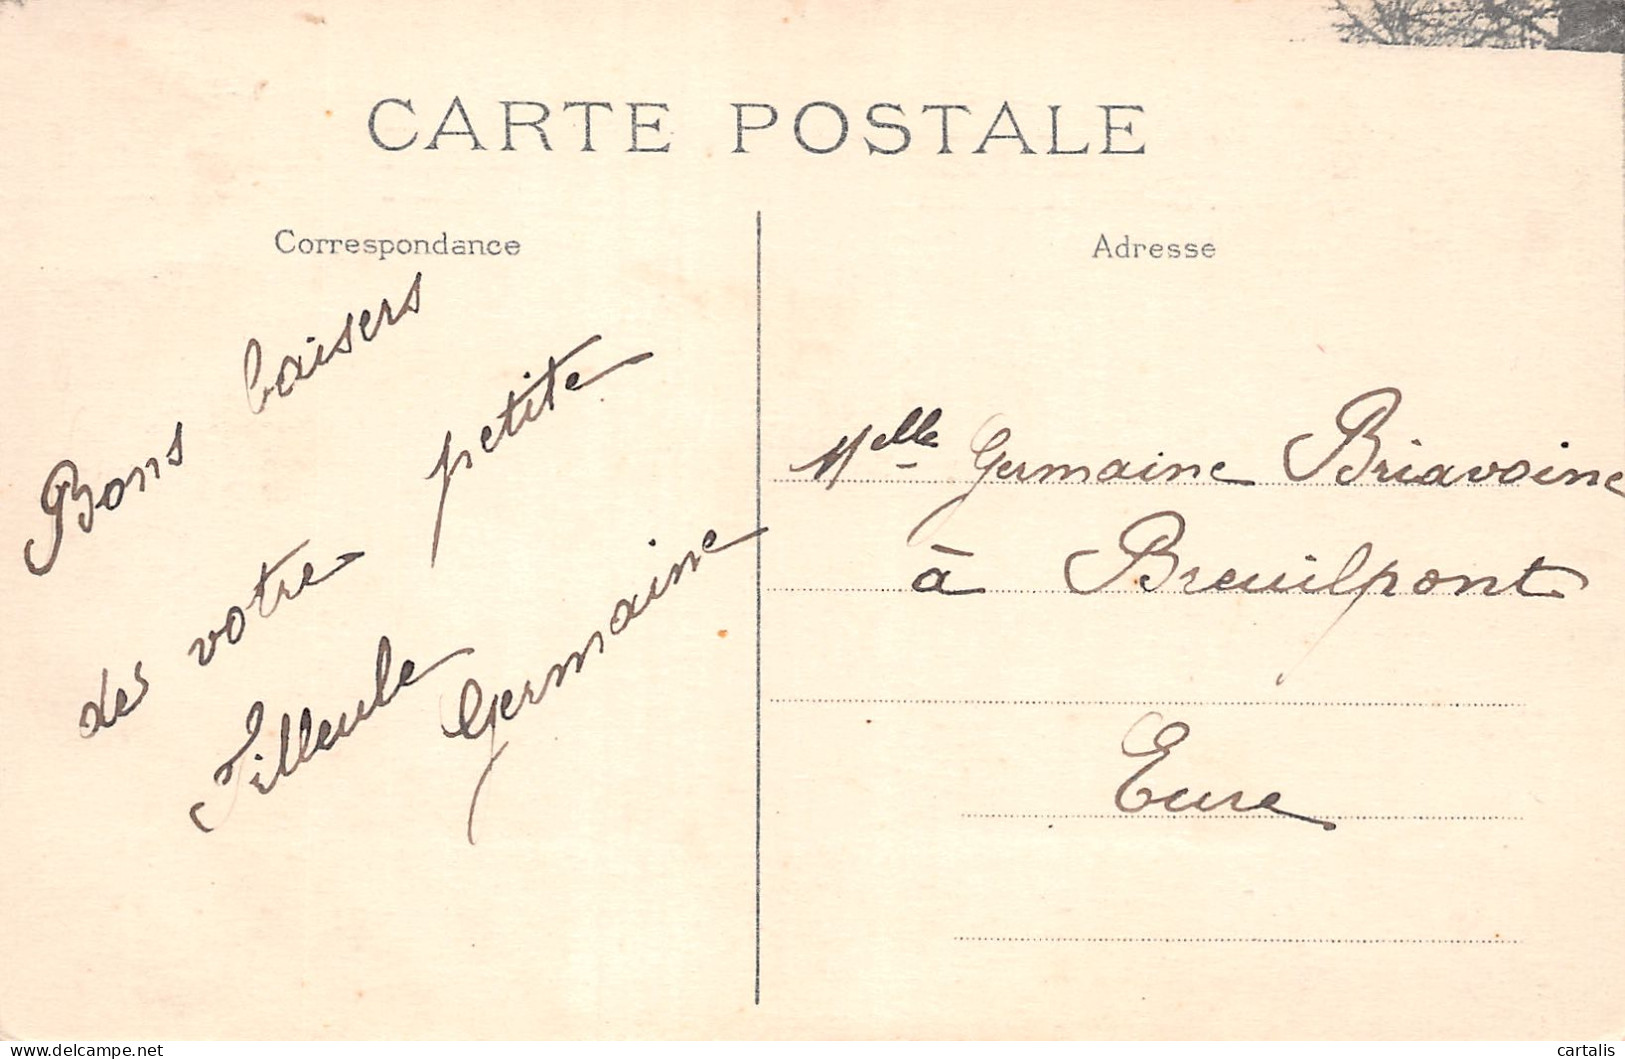 CARTE POSTALE
Correspondance
Bons baisers
des votre petite
Filleule Germaine
Adresse
Melle Germaine Briavoine
à Breuilpont
Eure
delcampe.net
cartalis